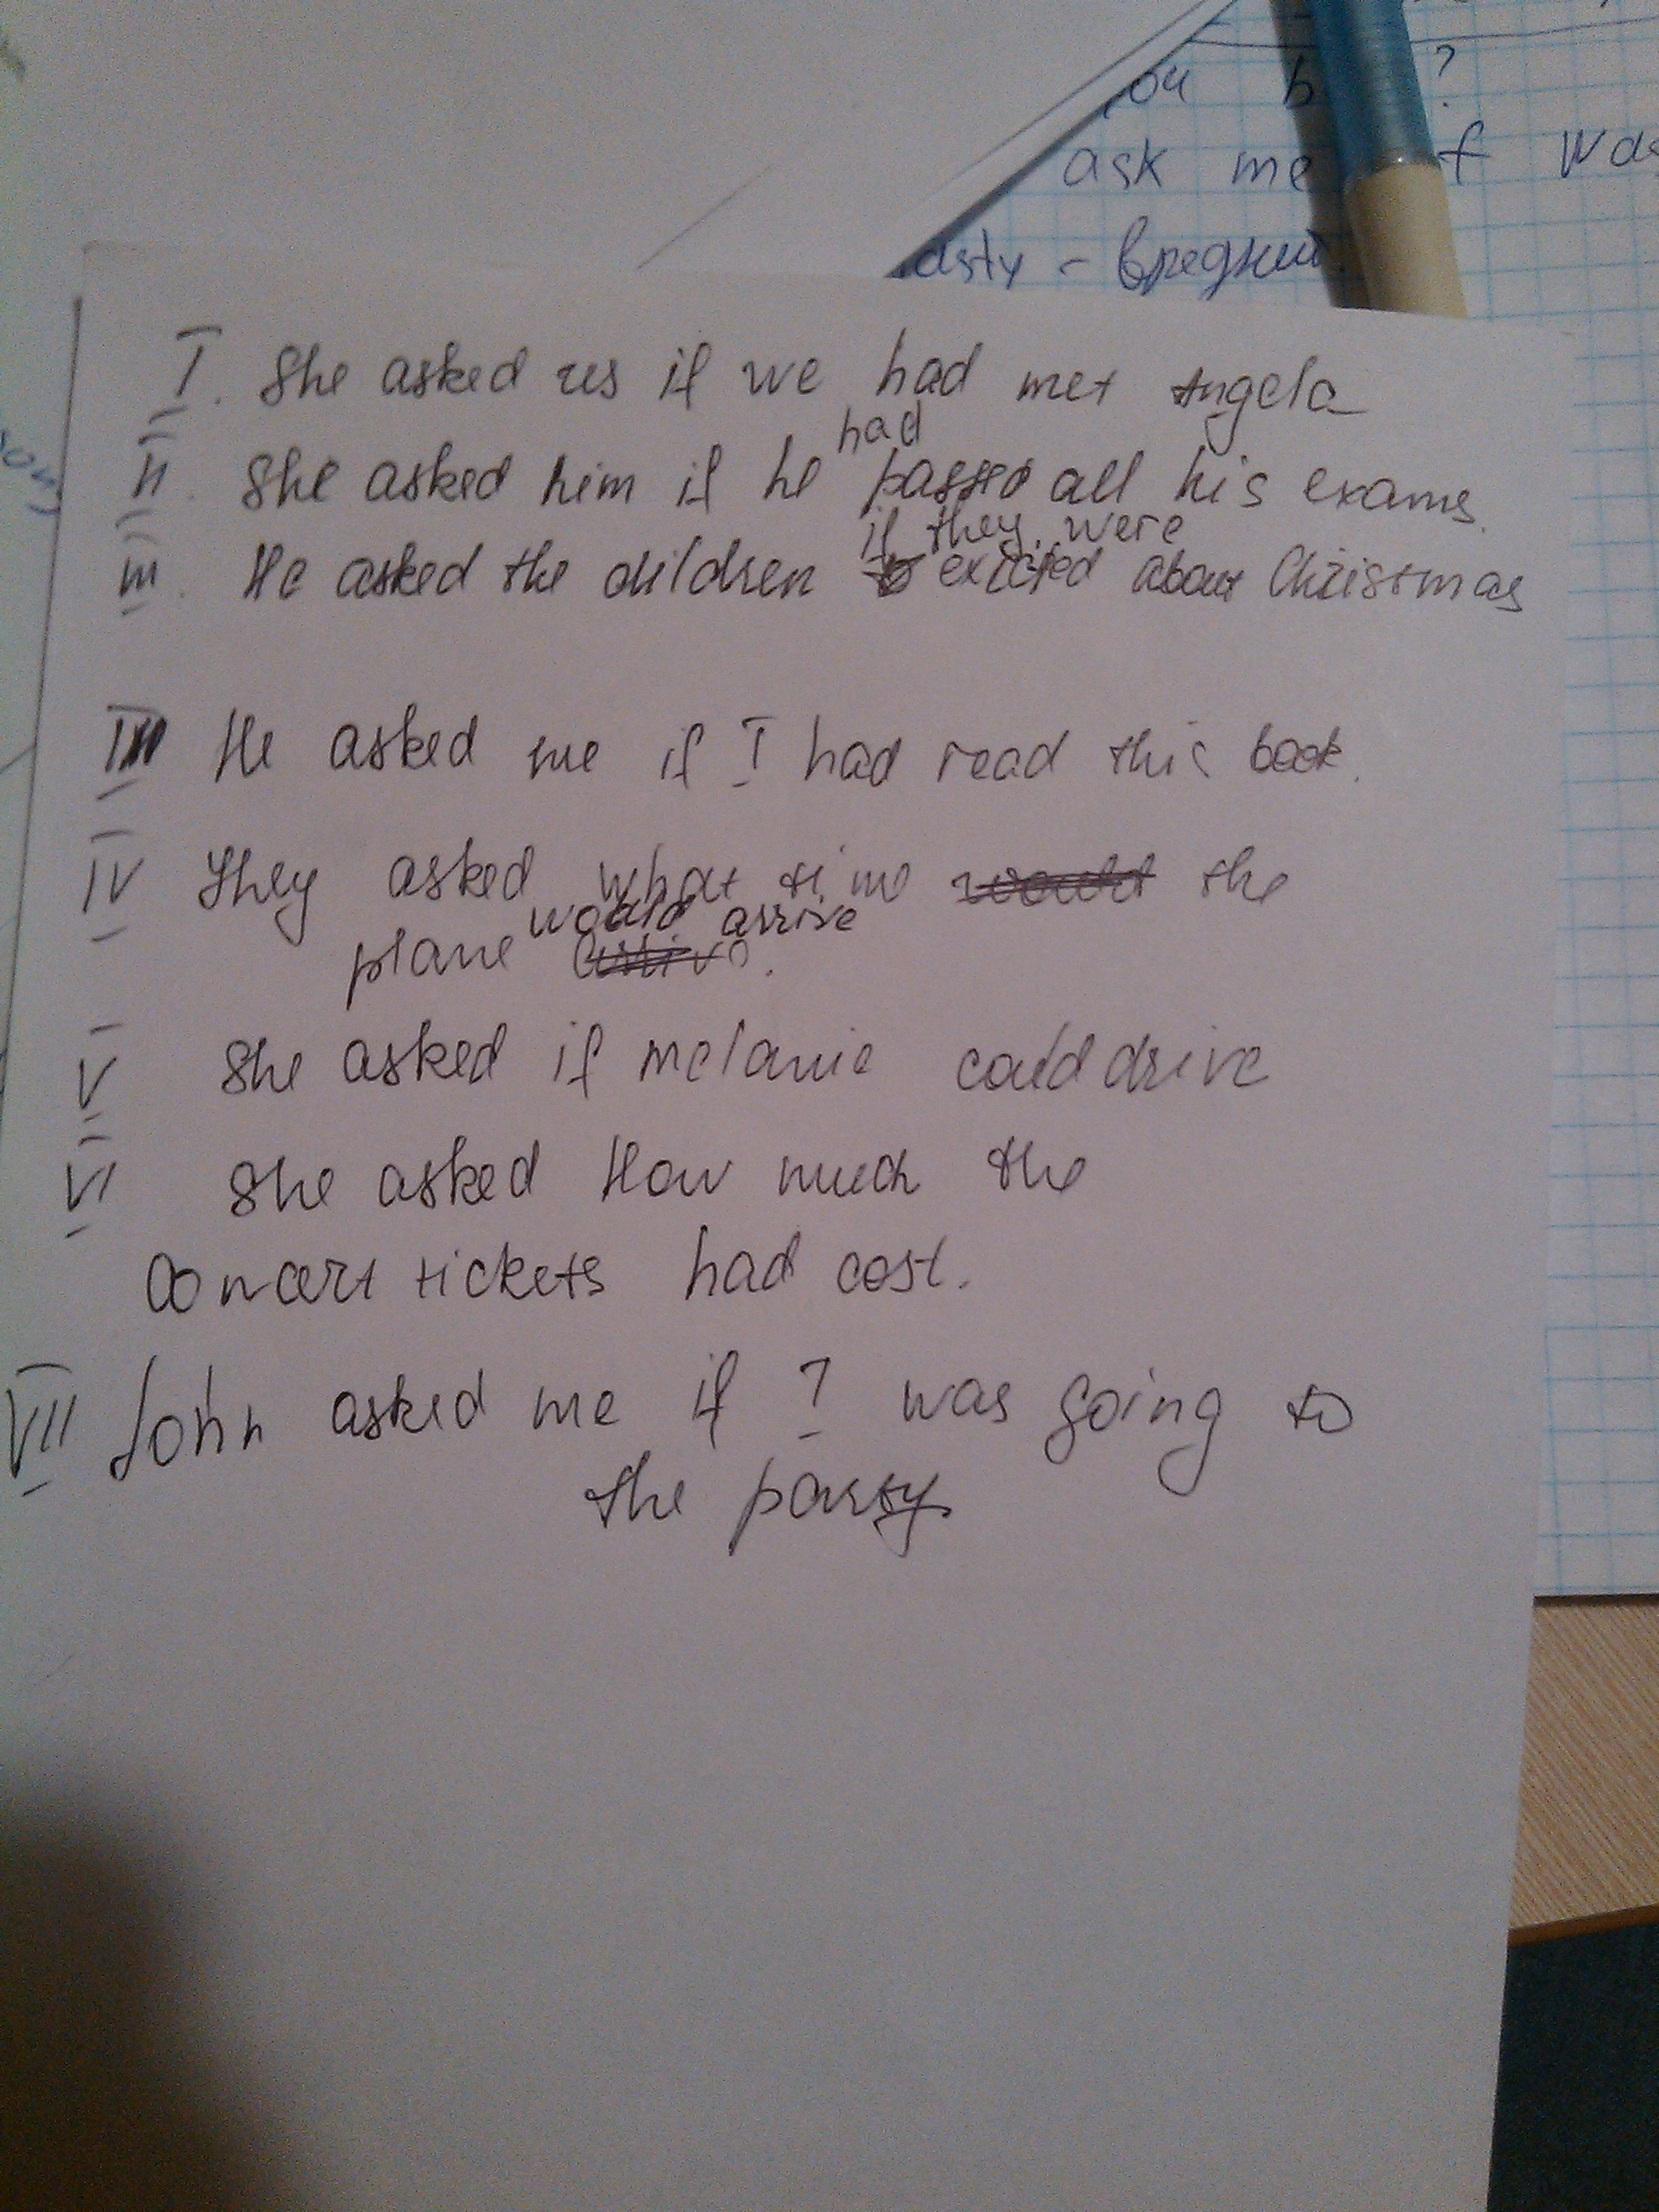 ou b ?
ask me f was
asty - вредный
I. She asked us if we had met Angela
had
II. She asked him if he passed all his exams.
if they were
III. He asked the children exicted about Christmas
III He asked me if I had read this book.
IV They asked what time would the
would arrive
plane arrive.
V She asked if melanie could drive
VI She asked How much the
Concert tickets had cost.
VII John asked me if I was going to
the party